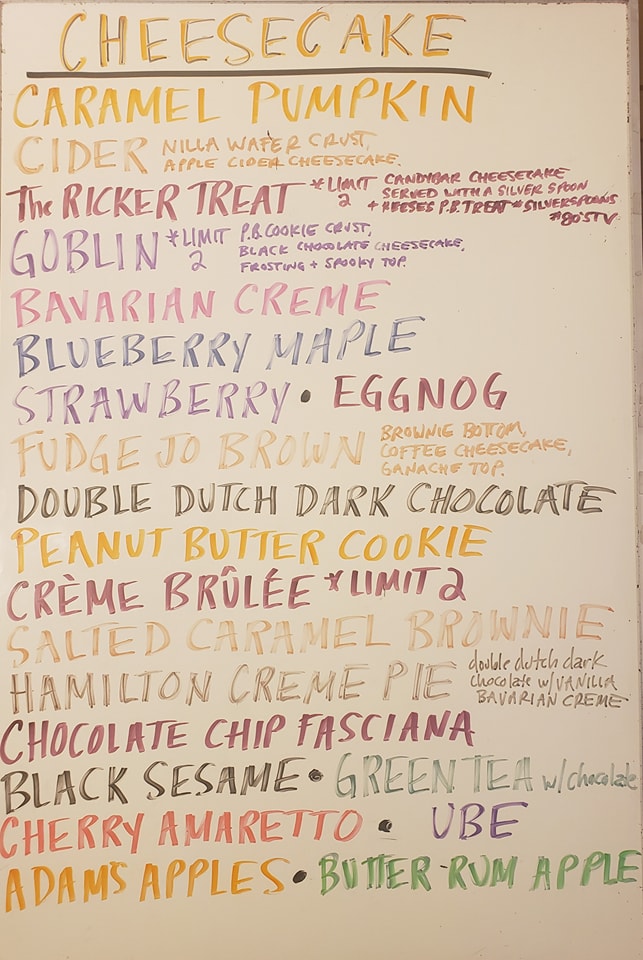 CHEESECAKE
CARAMEL PUMPKIN
CIDER NILLA WAFER CRUST,
APPLE CIDER CHEESECAKE.
The RICKER TREAT *LIMIT 2 CANDYBAR CHEESECAKE
SERVED WITH A SILVER SPOON
+ REESES P.B. TREAT #SILVERSPOONS
#80'STV
GOBLIN *LIMIT 2 P.B. COOKIE CRUST,
BLACK CHOCOLATE CHEESECAKE,
FROSTING + SPOOKY TOP.
BAVARIAN CREME
BLUEBERRY MAPLE
STRAWBERRY • EGGNOG
FUDGE JO BROWN BROWNIE BOTTOM,
COFFEE CHEESECAKE,
GANACHE TOP.
DOUBLE DUTCH DARK CHOCOLATE
PEANUT BUTTER COOKIE
CRÈME BRÛLÉE *LIMIT 2
SALTED CARAMEL BROWNIE
HAMILTON CREME PIE double dutch dark
chocolate w/VANILLA
BAVARIAN CREME
CHOCOLATE CHIP FASCIANA
BLACK SESAME • GREEN TEA w/chocolate
CHERRY AMARETTO • UBE
ADAM'S APPLES • BUTTER RUM APPLE